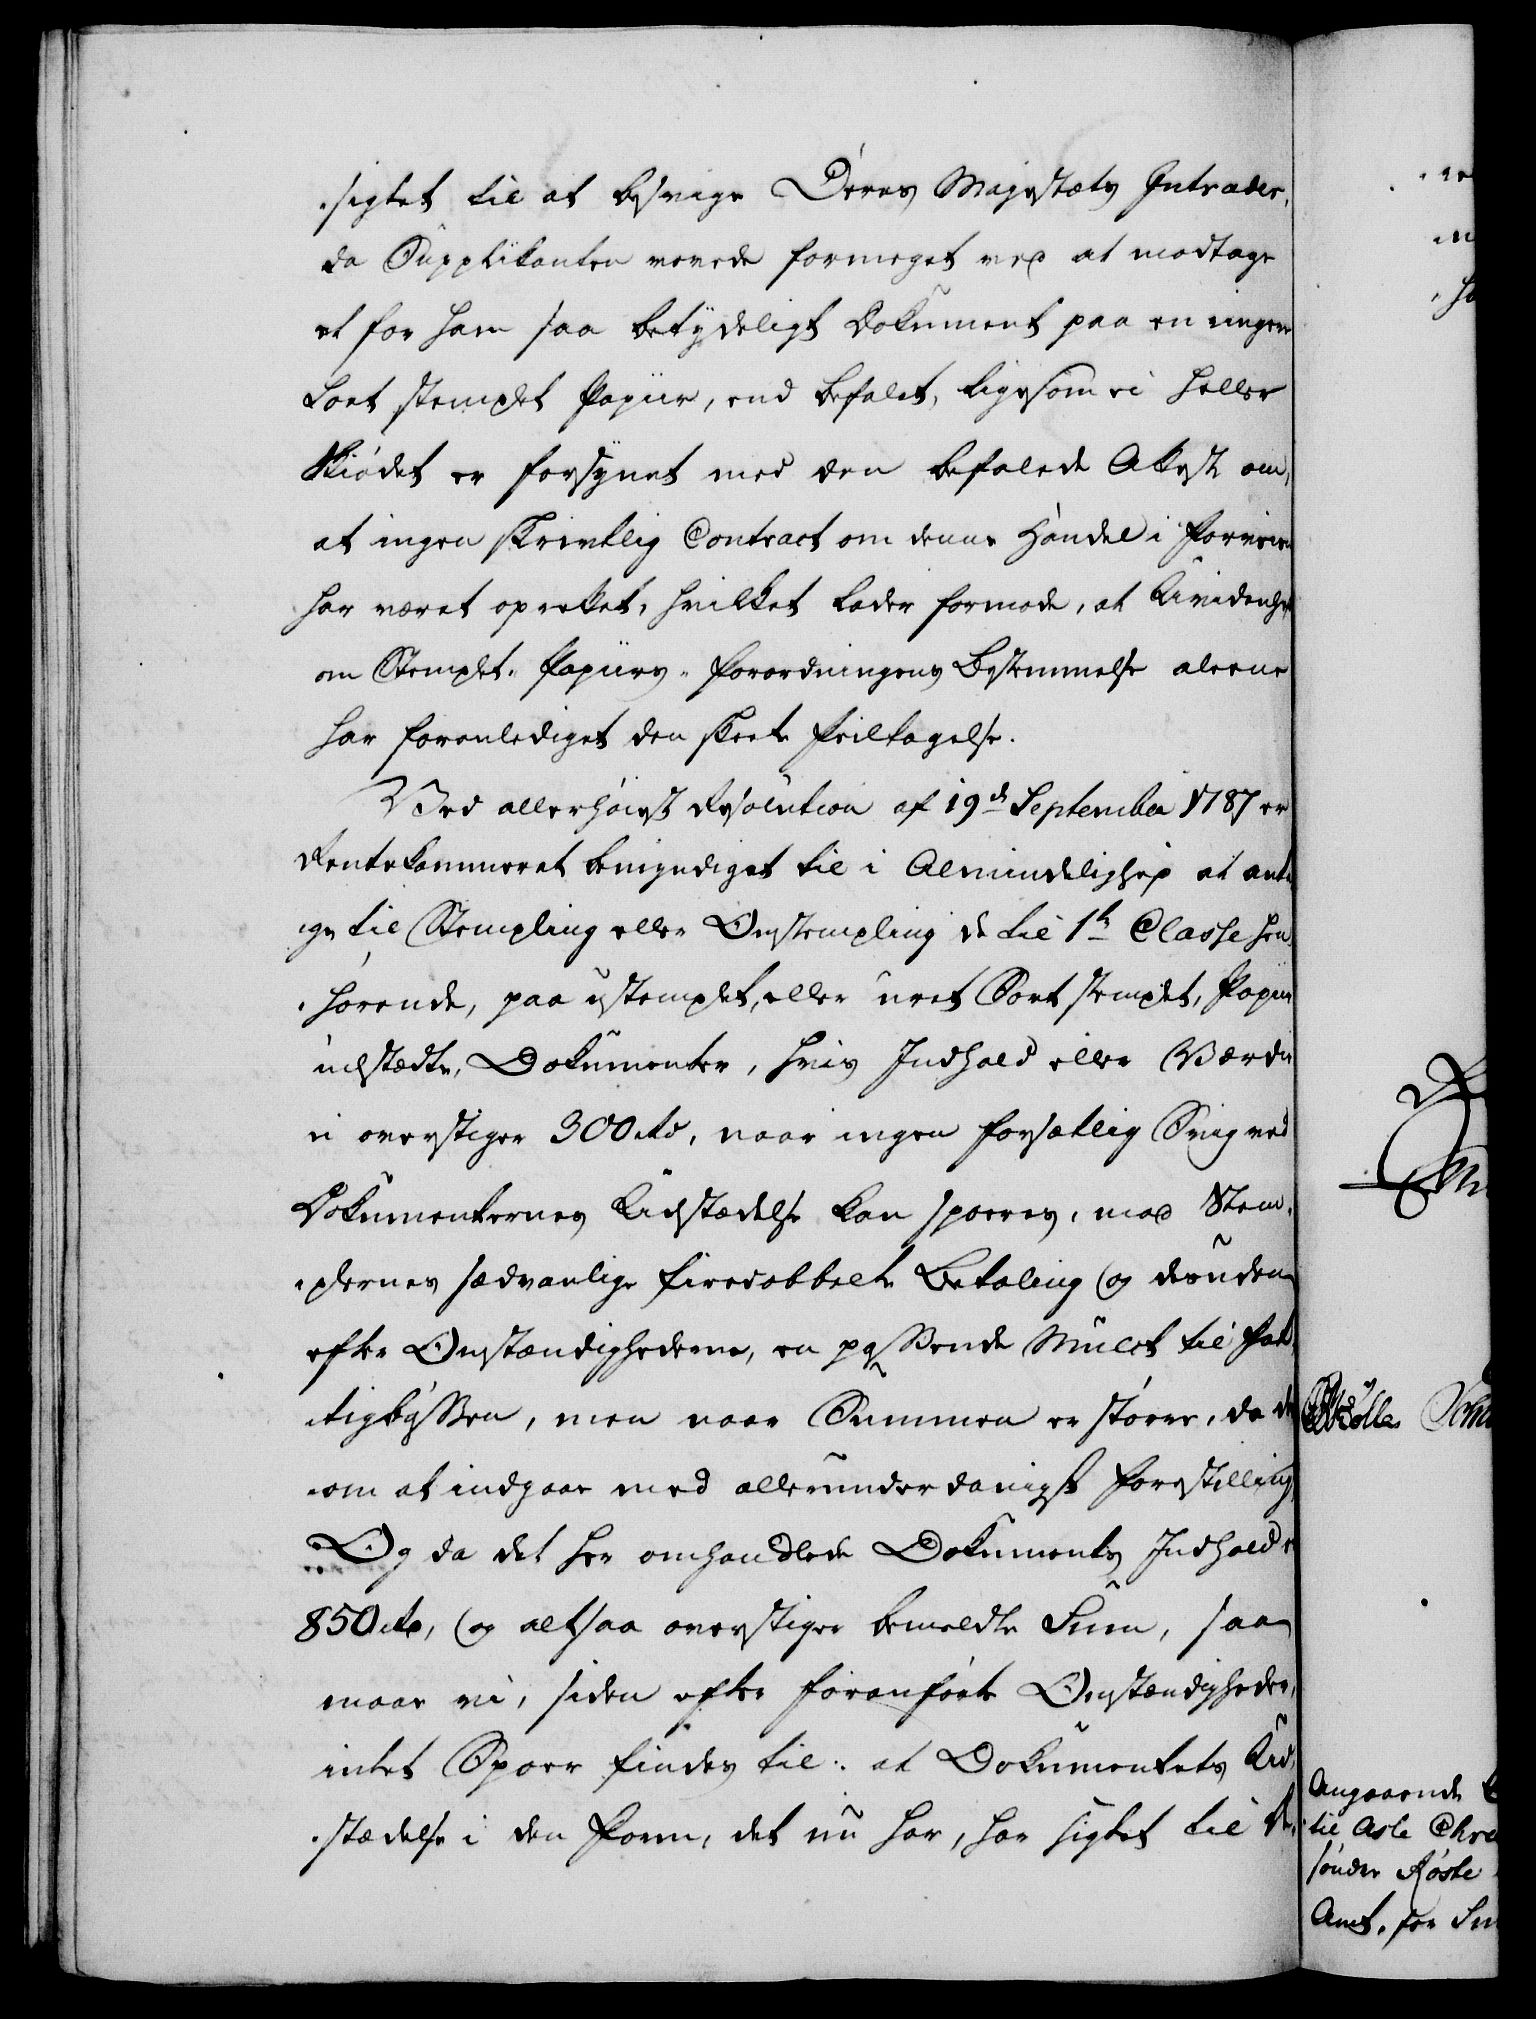 sigtet til at besvige Deres Majestæts Intrader,
da Supplikanten vovede formeget ved at modtage
et for ham saa betydeligt Dokument paa en ringere
Sort stemplet Papiir, end befalet, ligesom ei heller
Skiødet er forsynet med den befalede Attest om,
at ingen skrivtlig Contract om denne Handel i Forveien
har været oprettet, hvilket lader formode, at Uvidenhed
om Stemplet-Papiirs-Forordningens Bestemmelse alene
har foranlediget den skeete Feiltagelse.
Ved allerhøiest Resolution af 19de September 1787 er
Rentekammeret bemyndiget til i Almindelighed at anta-
ge til Stempling eller Omstempling de til 1te Classe hen-
hørende, paa ustemplet, eller uret Sort stemplet, Papiir
udstædte, Dokumenter, hvis Indhold eller Værdie
ei overstiger 300 rd, naar ingen forsætlig Svig ved
Dokumenternes Udstædelse kan spores, mod Stem-
plernes sædvanlige firedobbelte Betaling og desuden
efter Omstændighederne, en passende Mulct til Fat-
tigbøssen, men naar Summen er større, da der-
om at indgaae med allerunderdanigst Forestilling.
Og da det her omhandlede Dokuments Indhold er
850 rd, og altsaa overstiger bemeldte Sum, saa
maae vi, siden efter foranførte Omstændigheder,
intet Spoer findes til: at Dokumentets Ud-
stædelse i den Form, det nu har, har sigtet til
Angaaende
til Asle
sønder
Amt, for